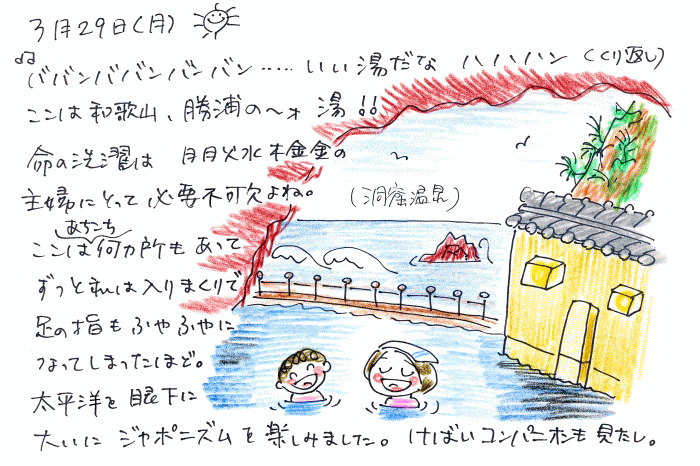 3月29日(月)
♫ババンババンバンバン…‥いい湯だな ハハハン (くり返し)
ここは和歌山、勝浦の〜ォ 湯!!
命の洗濯は 月月火水木金金の
主婦にとって必要不可欠よね。
(洞窟温泉)
あちこち
ここは何カ所もあって
ずっと私は入りまくりで
足の指もふやふやに
なってしまったほど。
太平洋を眼下に
大いにジャポニズムを楽しみました。けばいコンパニオンも見たし。